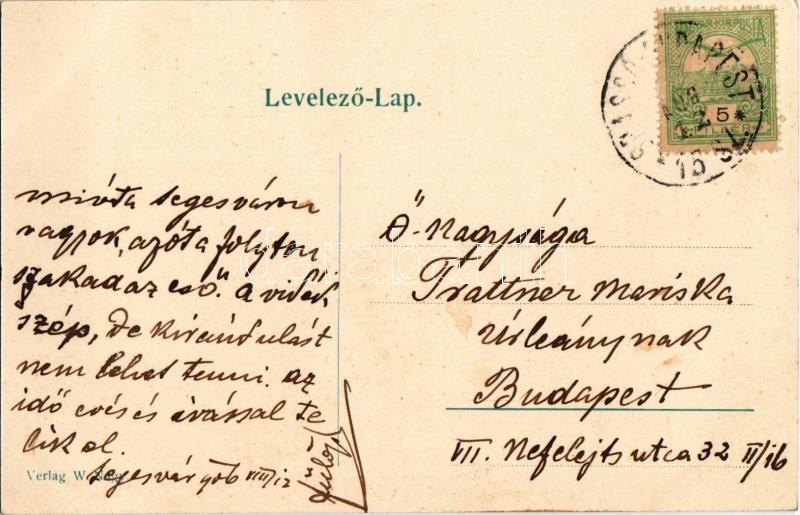 MAGYAR KIR. POSTA
5
FILLÉR
BUDAPEST
AUG
12
Levelező-Lap.
mióta Segesváron
vagyok, azóta folyton
szakad az eső. A vidék
szép, de kirándulást
nem lehet tenni. Az
idő evés és ivással te
lik el.
Segesvár 906 VIII/12
Fülöp
Ő Nagysága
Trattner Mariska
Úrleánynak
Budapest
VII. Nefelejts utca 32 II/16
Verlag W.
darabanth